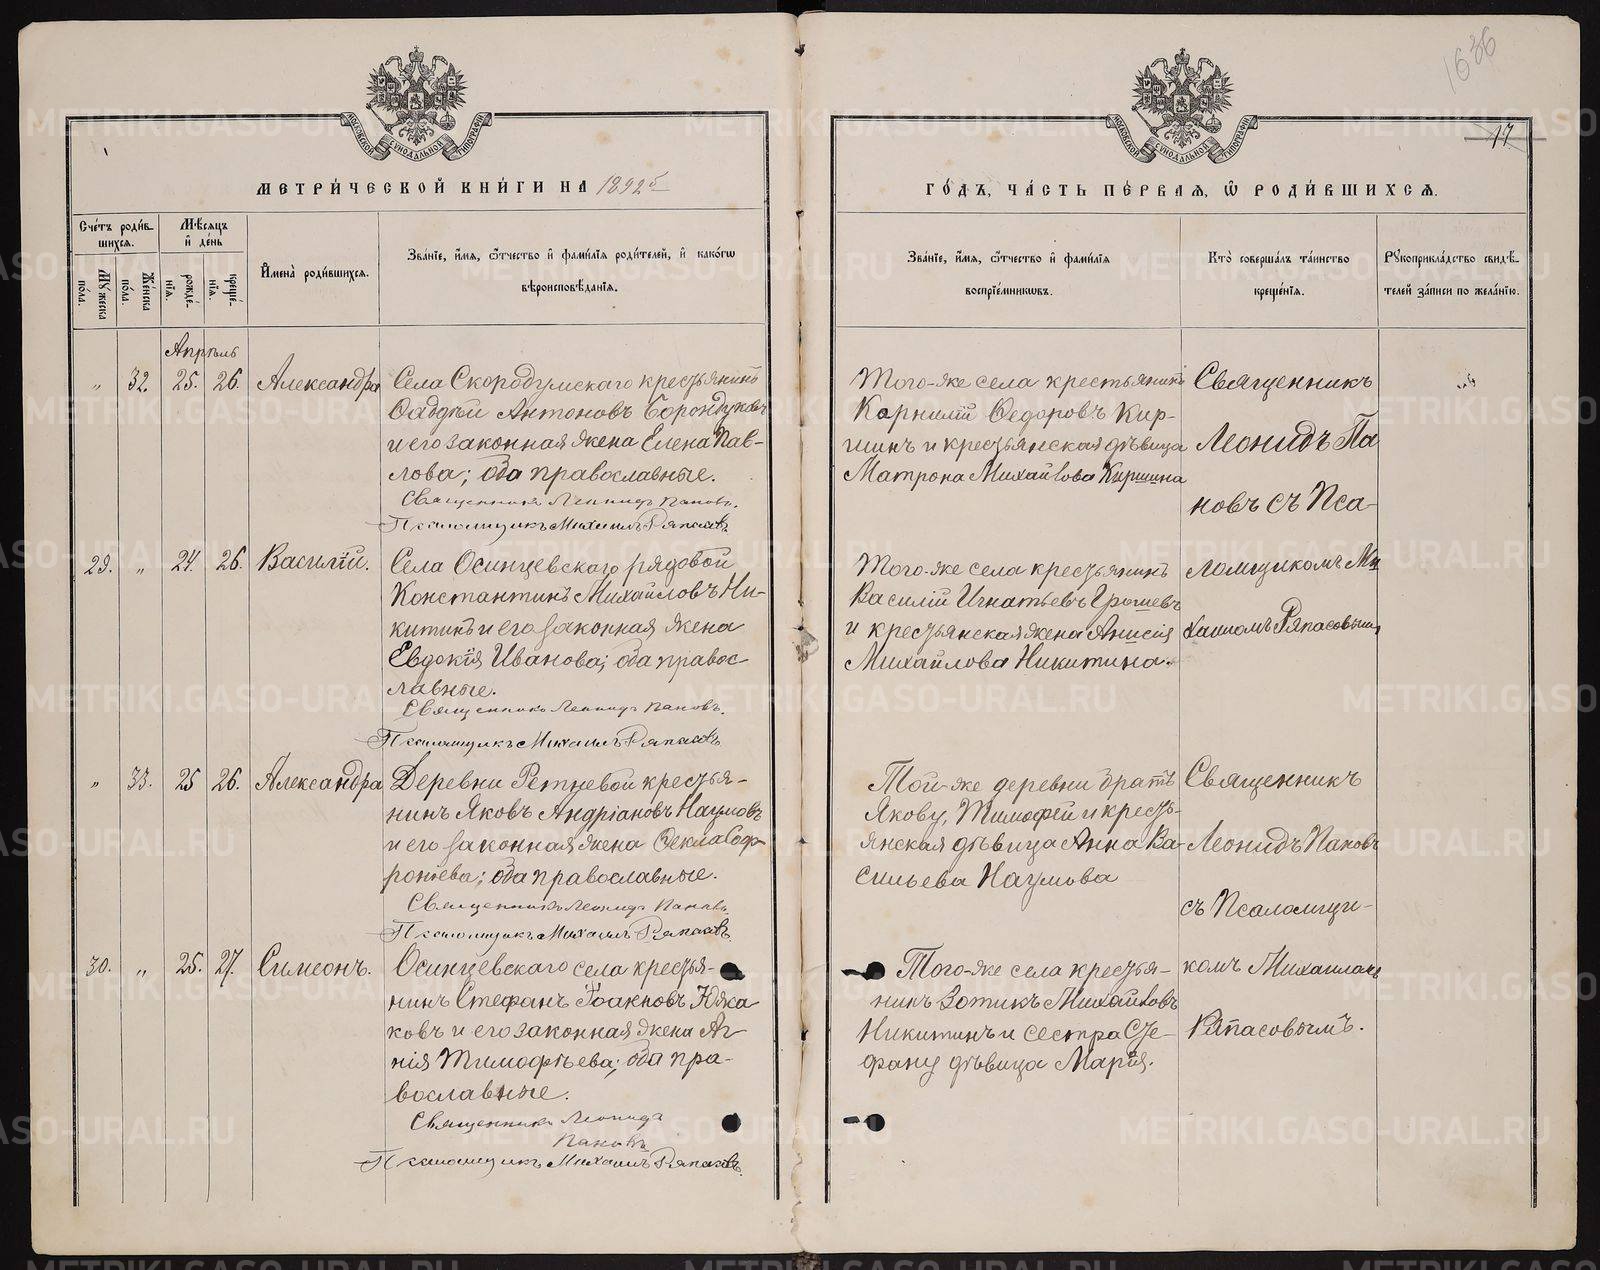 1636
17
МОСКОВСКОЙ СУНОДАЛЬНОЙ ТИПОГРАФІИ
МОСКОВСКОЙ СУНОДАЛЬНОЙ ТИПОГРАФІИ
МЕТРИ́ЧЕСКОЙ КНИ́ГИ НА 1892й
ГО́ДЪ, ЧА́СТЬ ПЕ́РВАЯ, Ѡ РОДИ́ВШИХСЯ.
Сче́тъ роди́в-
шихся.
Мужеска по́ла.
Же́нска по́ла.
Мѣ́сяцъ
и҆ де́нь
рожде́-
нїя.
креще́-
нїя.
И҆мена̀ роди́вшихся.
Зва́нїе, и҆́мя, ѻ҆́тчество и҆ фами́лїя роди́телей, и҆ како́гѡ
вѣроисповѣ́данїя.
Зва́нїе, и҆́мя, ѻ҆́тчество и҆ фами́лїя
воспрїе́мникѡвъ.
Кто̀ соверша́лъ та́инство
креще́нїя.
Рукоприкла́дство свидѣ́-
телей за́писи по жела́нїю.
Апрѣль
„ 32. 25. 26. Александра
Села Скородумскаго крестьянинъ
Фаддѣй Антоновъ
и его законная жена Елена Пав-
лова; оба православные.
Священникъ Леонидъ Пановъ.
Псаломщикъ Михаилъ Ряпасовъ
Того-же села крестьянинъ
Корнилій Ѳедоровъ Кир-
шинъ и крестьянская дѣвица
Матрона Михайлова Киршина
Священникъ
Леонидъ Па
новъ съ Пса-
29. „ 24. 26. Василій.
Села Осинцевскаго рядовой
Константинъ Михайловъ Ни-
китинъ и его законная жена
Евдокія Иванова; оба правос-
лавные.
Священникъ Леонидъ Пановъ.
Псаломщикъ Михаилъ Ряпасовъ
Того-же села крестьянинъ
Василій Игнатьевъ
и крестьянская жена Анисія
Михайлова Никитина.
ломщикомъ Ми
хаиломъ Ряпасовымъ
„ 33. 25 26. Александра
Деревни Ретневой крестья-
нинъ Яковъ Андріановъ Наумовъ
и его законная жена Ѳекла Соф-
роніева; оба православные.
Священникъ Леонидъ Пановъ.
Псаломщикъ Михаилъ Ряпасовъ
Той-же деревни братъ
Якову, Тимофей и кресть-
янская дѣвица Анна Ва-
сильева Наумова
Священникъ
Леонидъ Пановъ
съ Псаломщи-
30. „ 25. 27. Симеонъ.
Осинцевскаго села крестья-
нинъ Стефанъ Іоакимовъ Южа
ковъ и его законная жена Аг-
нія Тимофѣева; оба пра-
вославные.
Священникъ Леонидъ
Пановъ
Псаломщикъ Михаилъ Ряпасовъ
Того-же села крестья-
нинъ Зотикъ Михайловъ
Никитинъ и сестра Сте-
фану дѣвица Марія.
комъ Михаиломъ
Ряпасовымъ.